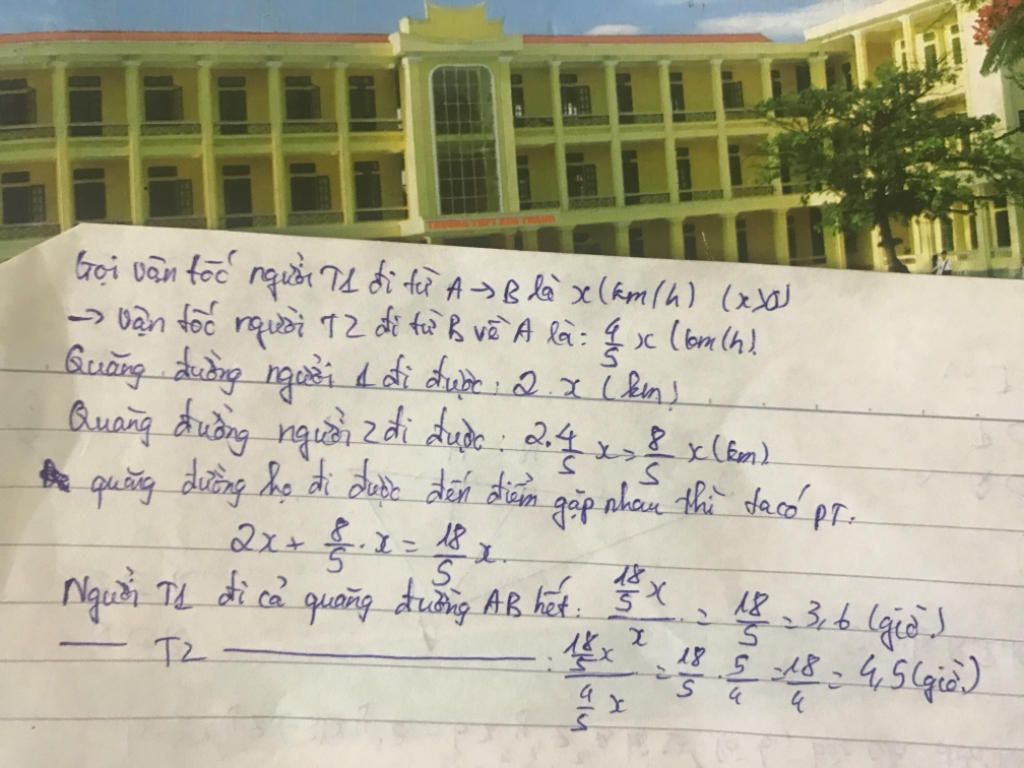 TRƯỜNG THPT KIM THÀNH
Gọi vận tốc người T1 đi từ A → B là x (km/h) (x>0)
→ Vận tốc người T2 đi từ B về A là: 4/5 x (km/h).
Quãng đường người 1 đi được: 2.x (km)
Quãng đường người 2 đi được: 2.4/5 x = 8/5 x (km)
quãng đường họ đi được đến điểm gặp nhau thì ta có PT:
2x + 8/5 . x = 18/5 x.
Người T1 đi cả quãng đường AB hết: (18/5 x)/x = 18/5 = 3,6 (giờ)
— T2 ———— : (18/5 x)/(4/5 x) = 18/5 . 5/4 = 18/4 = 4,5 (giờ)